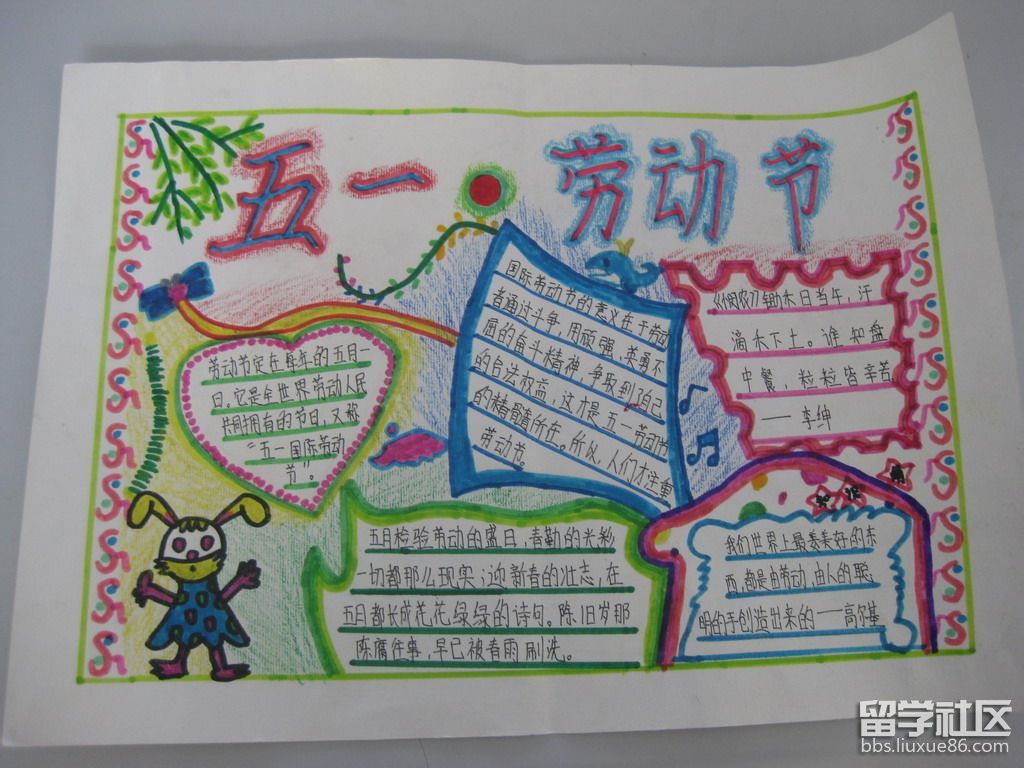 五一·劳动节
劳动节定在每年的五月一
日。它是全世界劳动人民
共同拥有的节日，又被
“五一国际劳动
节”。
国际劳动节的意义在于劳动
者通过斗争，用顽强、英勇不
屈的奋斗精神，争取到了自己
的合法权益，这才是五一劳动节
的精髓所在。所以，人们才注重
劳动节。
《悯农》锄禾日当午，汗
滴禾下土。谁知盘
中餐，粒粒皆辛苦。
——李绅
五月检验劳动的盛日，春勤的光彩
一切都那么现实；迎新春的壮志，在
五月都长成花花绿绿的诗句。陈旧岁那
陈腐往事，早已被春雨刷洗。
我们世界上最美好的东
西，都是由劳动、由人的聪
明的手创造出来的——高尔基
留学社区
bbs.liuxue86.com